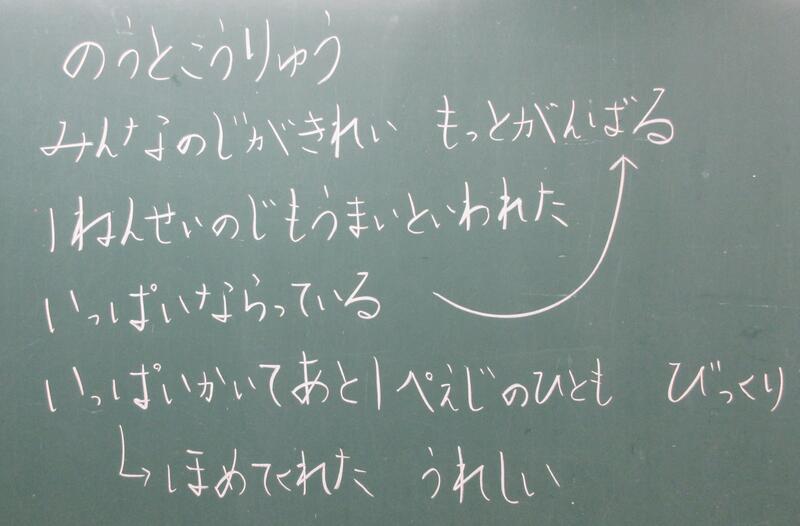 のうとこうりゅう
みんなのじがきれい もっとがんばる
1ねんせいのじもうまいといわれた
いっぱいならっている
いっぱいかいてあと1ぺえじのひとも びっくり
ほめてくれた うれしい